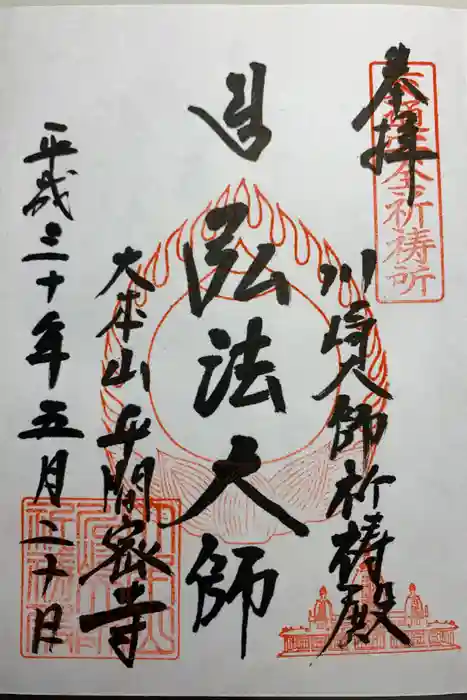 奉拝
交通安全祈祷所
川崎大師祈祷殿
弘法大師
大本山平間密寺
平成三十年五月二十日